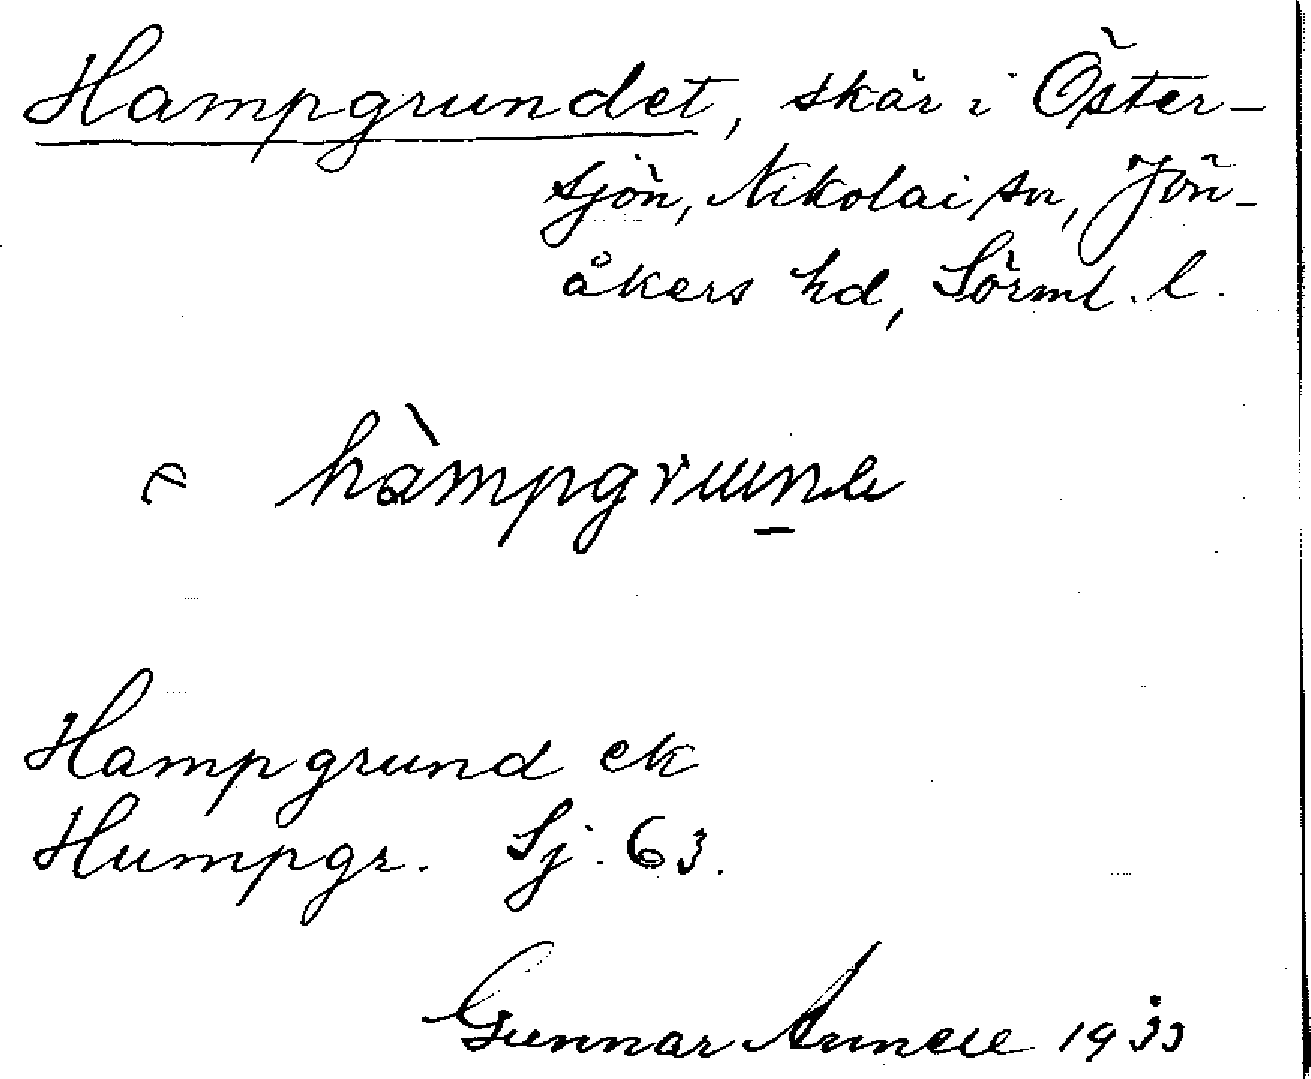 Hampgrundet, skär i Öster-
sjön, Nikolai sn, Jön-
åkers hd, Sörml. l.
hàmpgruṉde
Hampgrund ek
Humpgr. Sj. 63.
Gunnar Annell 1933